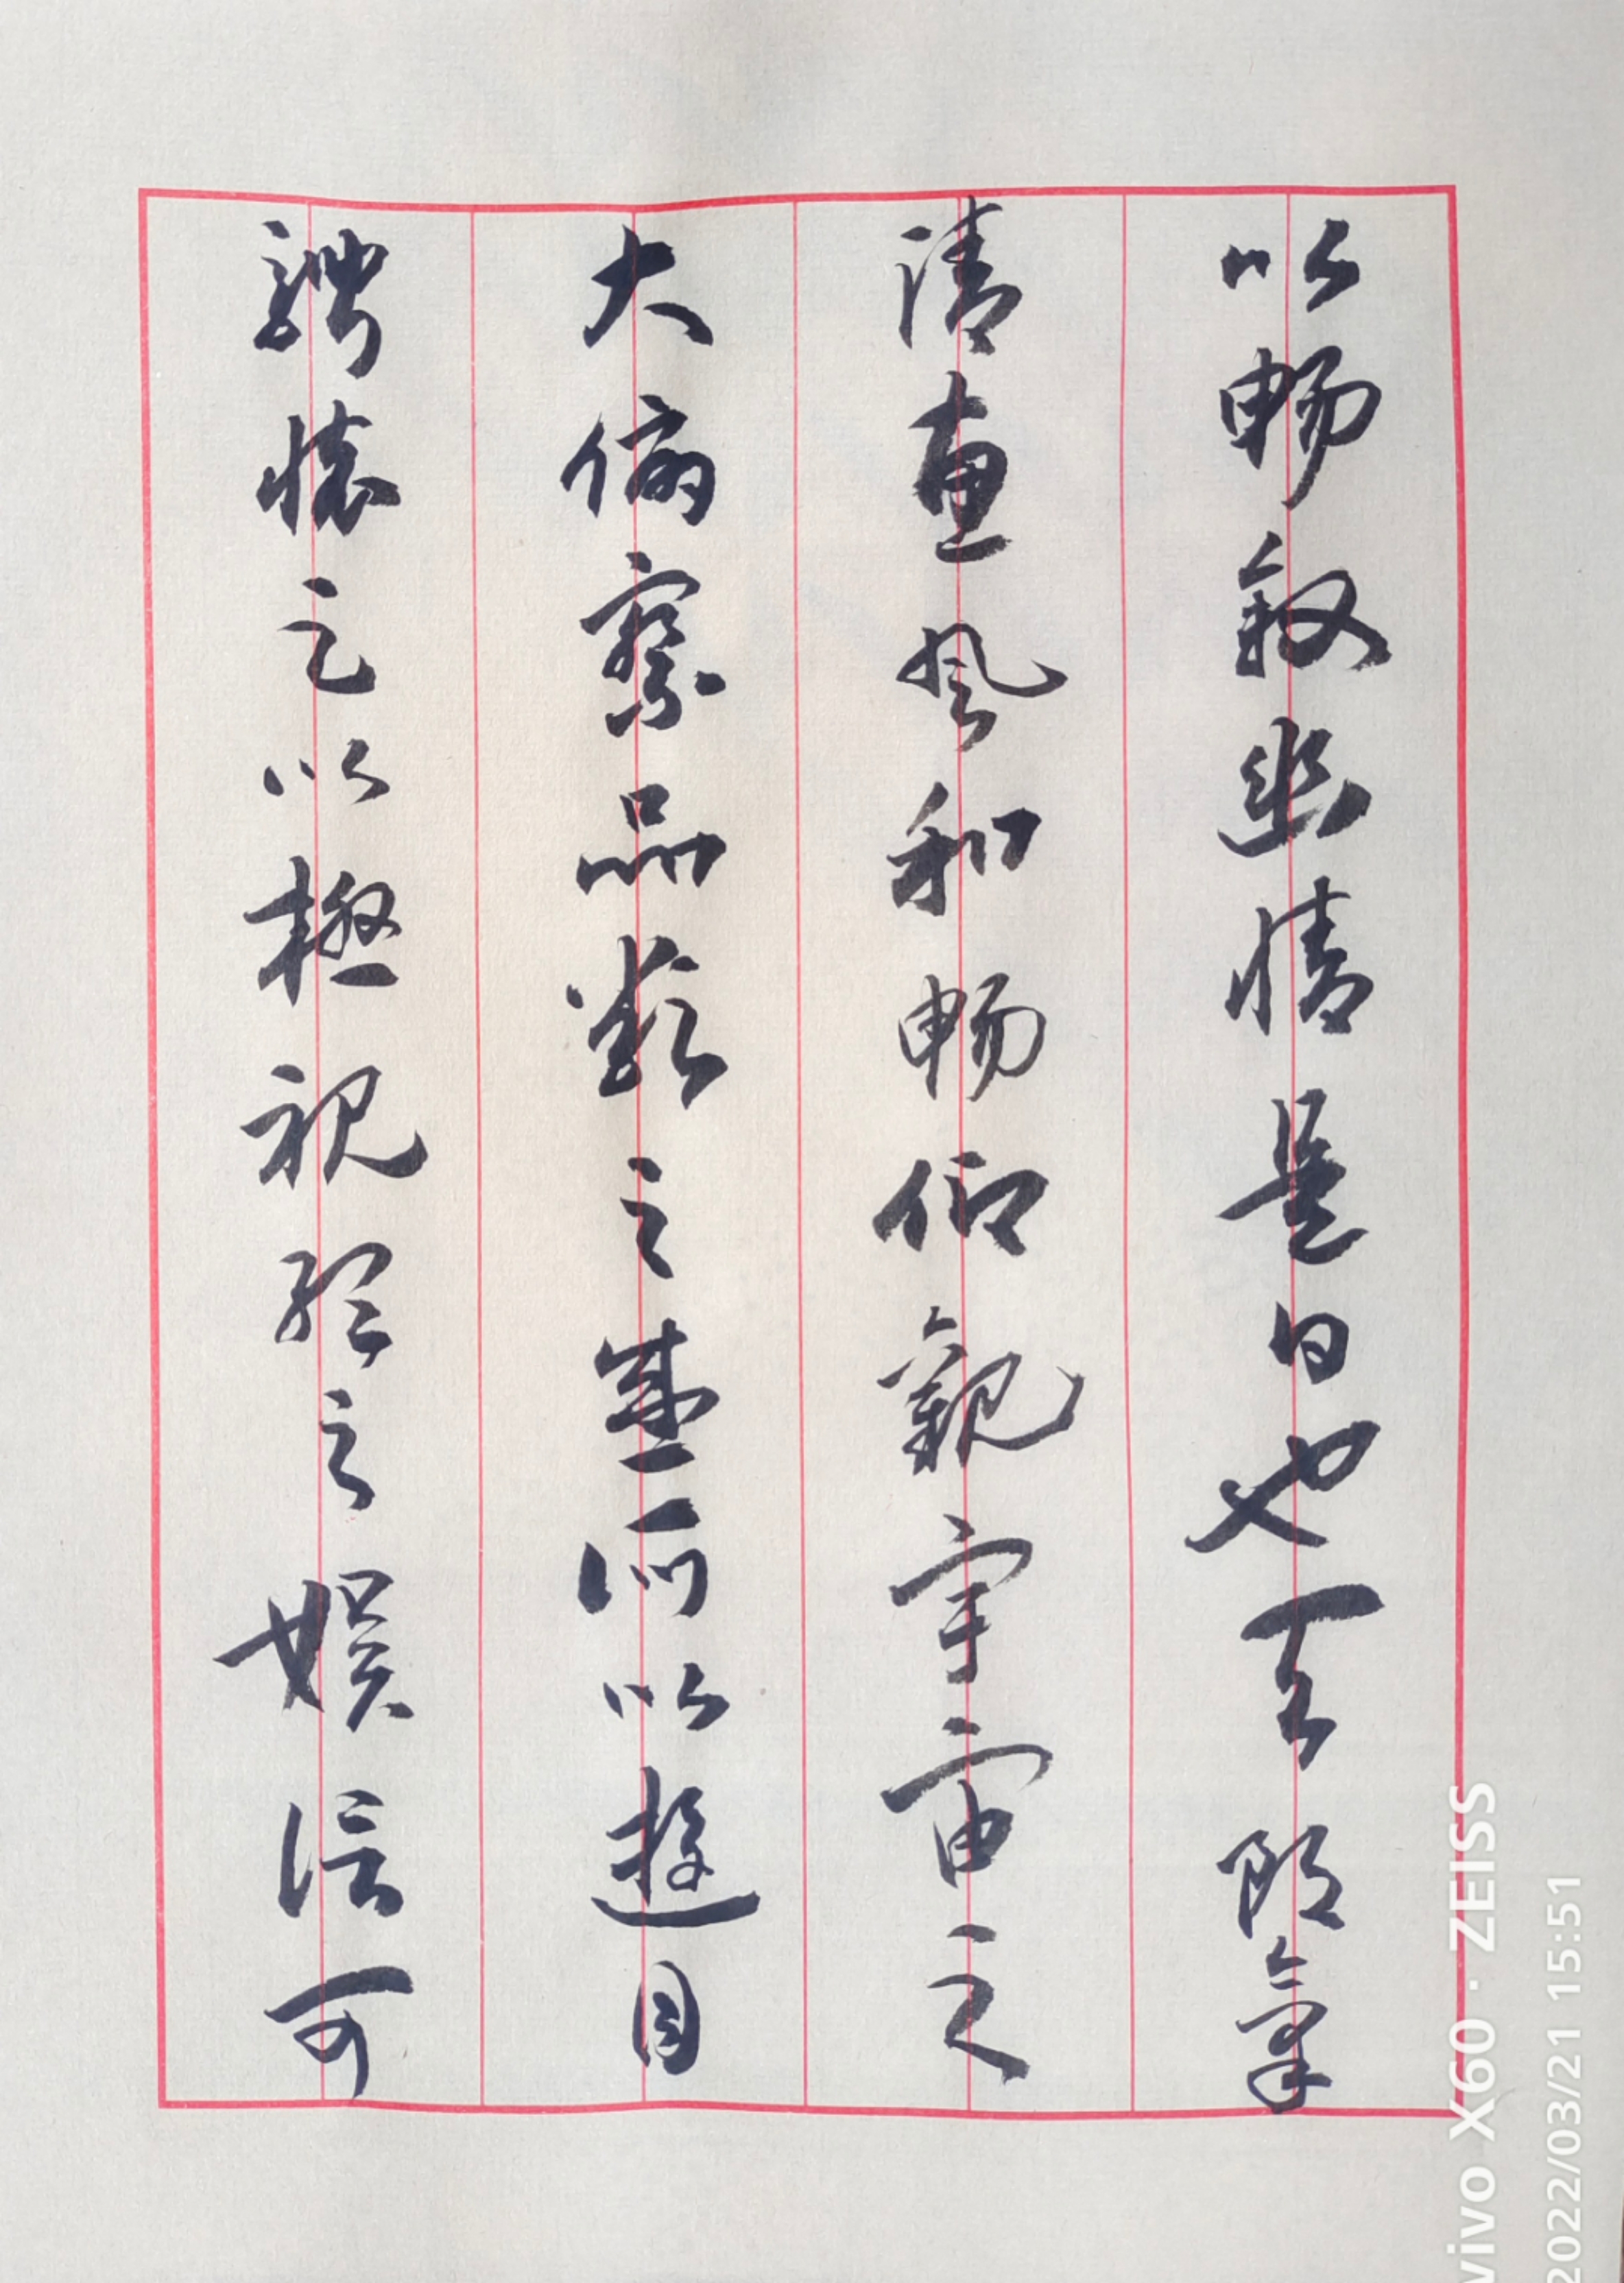 以暢叙幽情是日也天朗氣
清惠風和暢仰觀宇宙之
大俯察品類之盛所以遊目
騁懷足以極視聽之娛信可
vivo X60 · ZEISS
2022/03/21 15:51